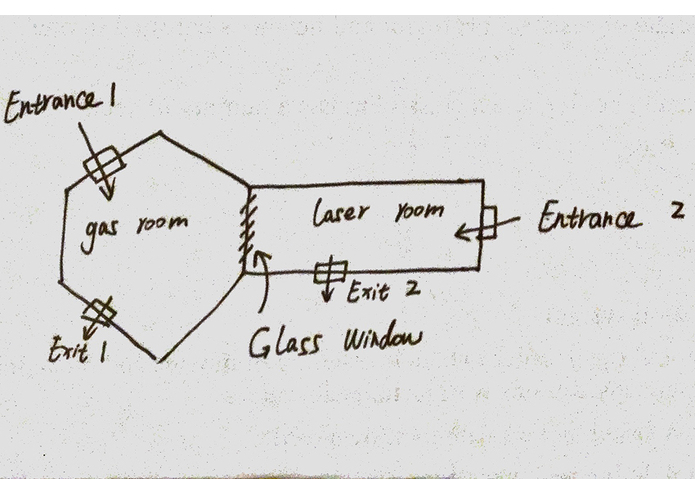 Entrance 1
gas room
Laser room
Entrance 2
Exit 2
Exit 1
Glass Window